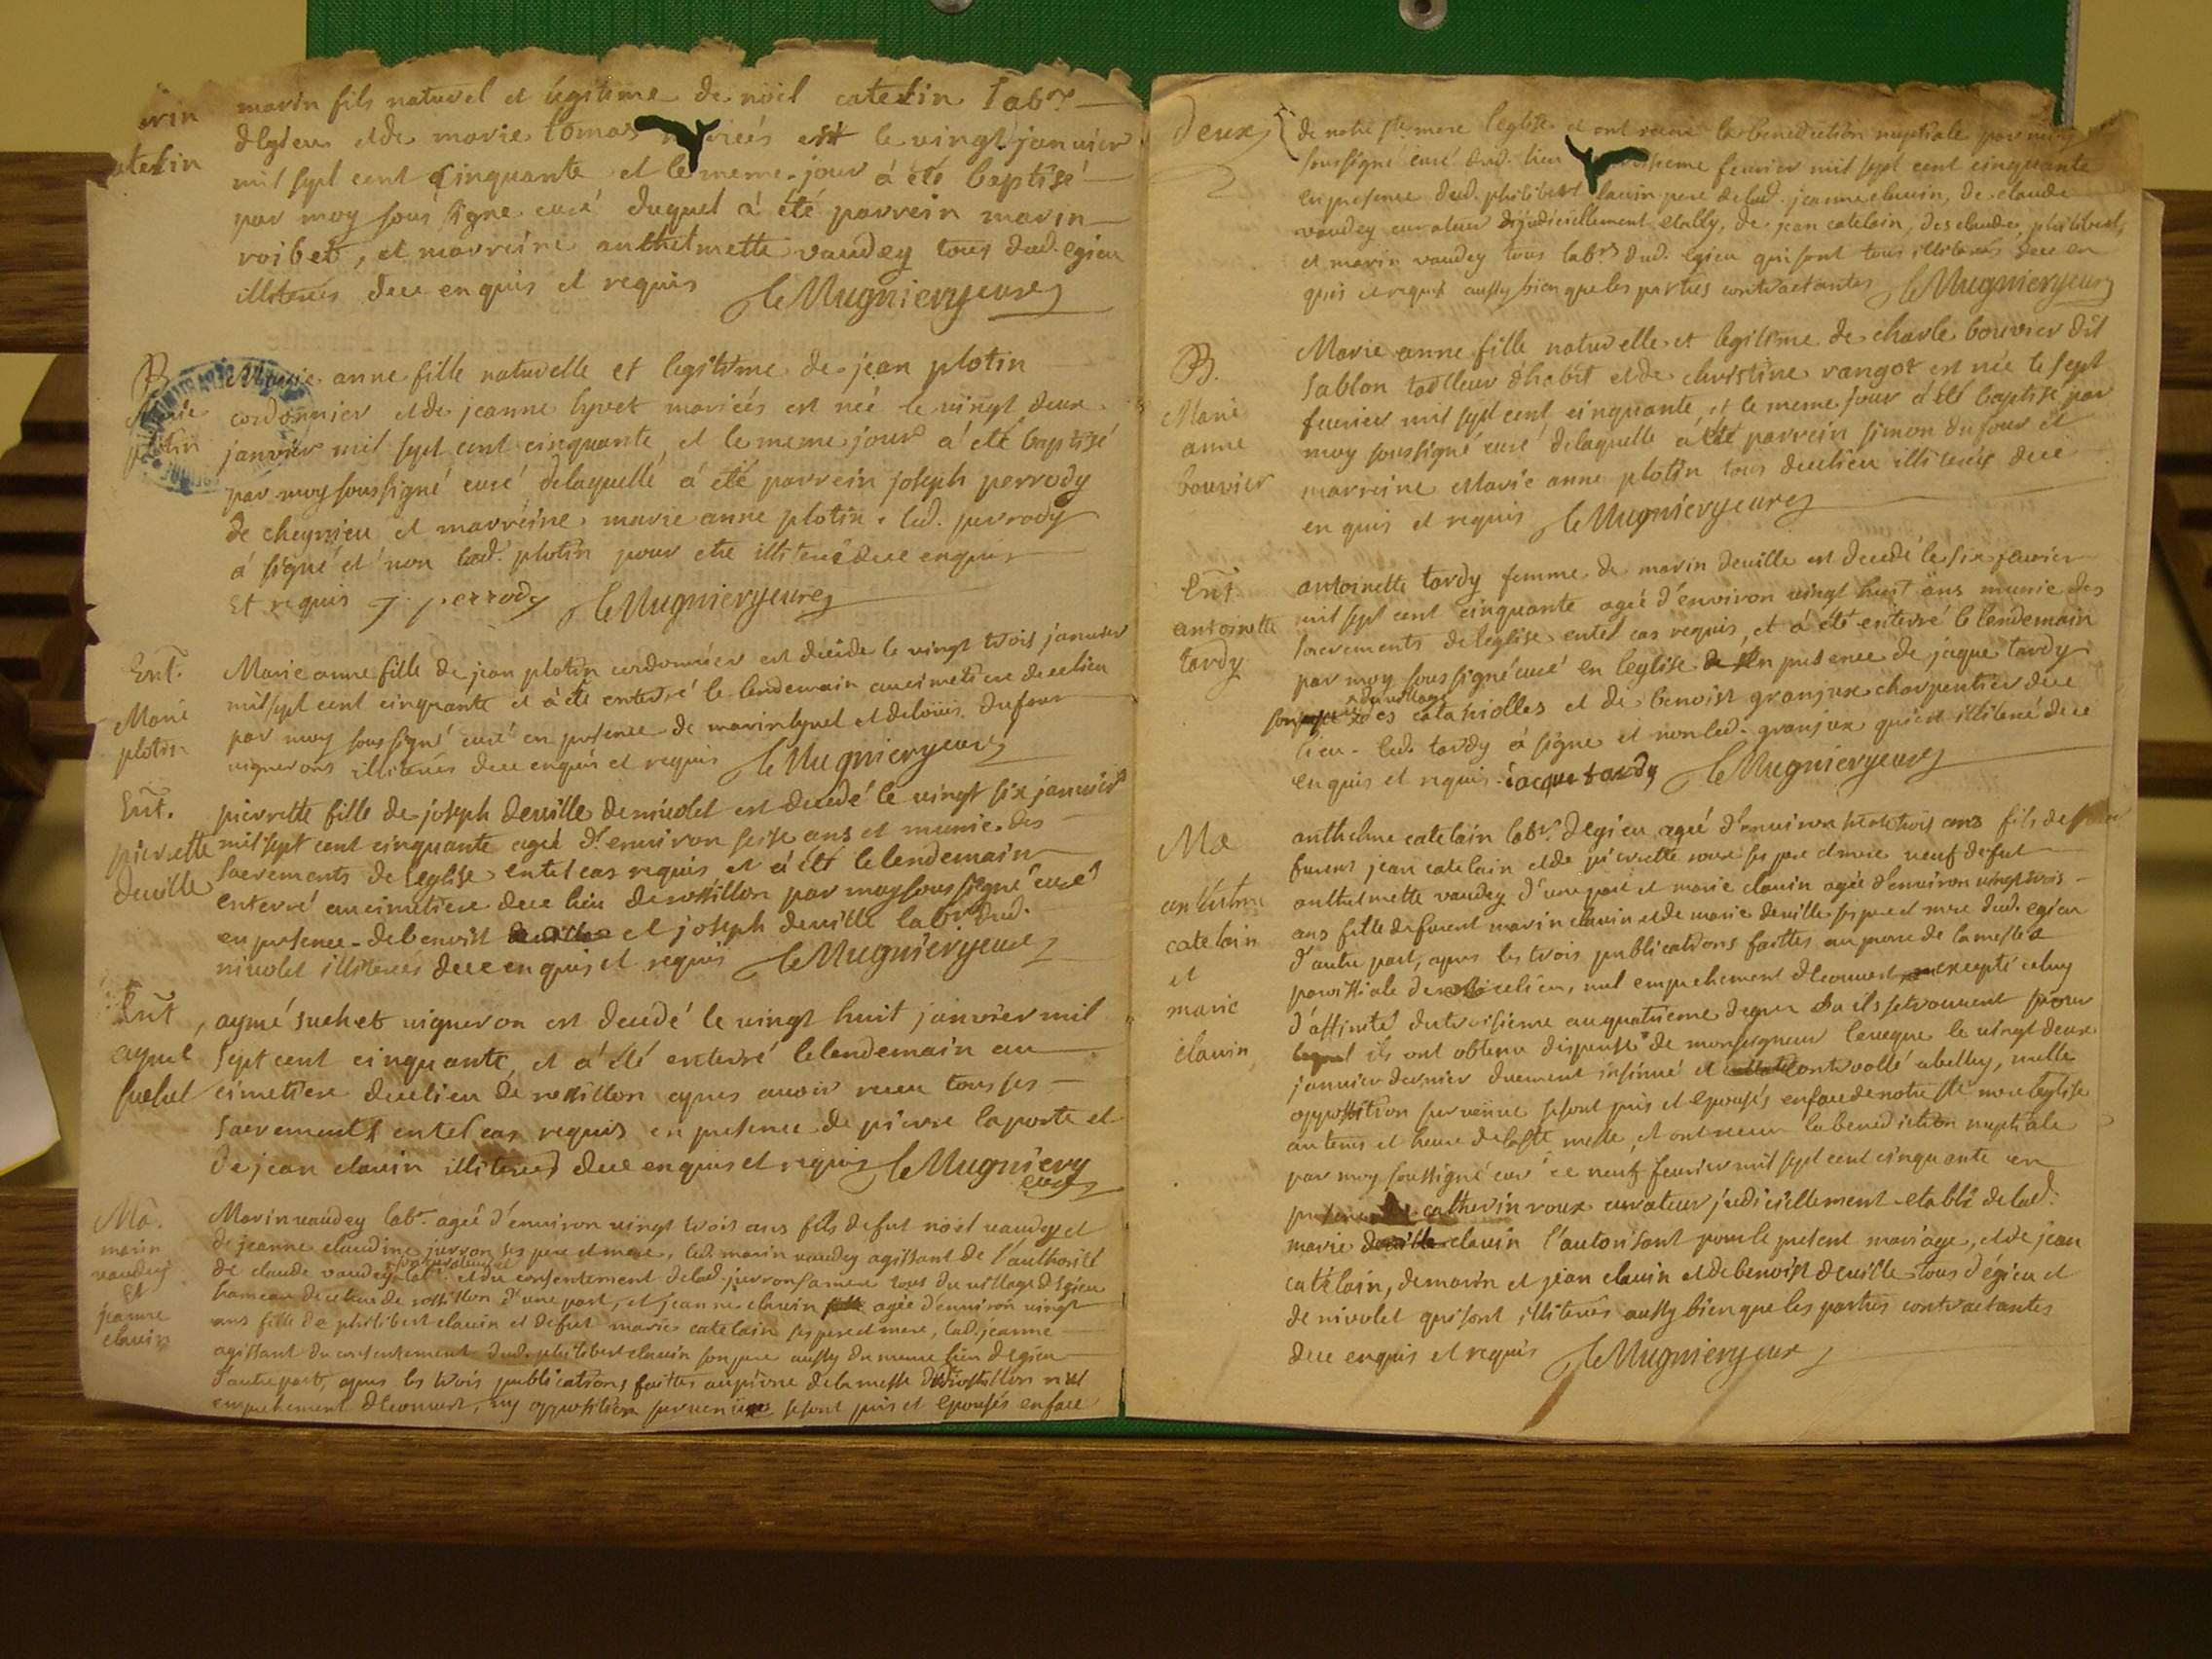 marin fils naturel et legitime de noël catelin labr.
d'egieu et de marie tomas mariées est le vingt janvier
mil sept cent cinquante et le meme jour à été baptisé
par moy sous signe curé duquel à été parrein marin
roibet, et marreine anthelmette vaudey tous dud. egieu
illiterés de ce enquis et requis Le Mugniery curé
B
Marie
plotin
Marie anne fille naturelle et legitime de jean plotin
cordonnier et de jeanne lyvet mariées est née le vingt deux
janvier mil sept cent cinquante, et le meme jour à été baptisé
par moy soussigné curé delaquelle à été parrein joseph perrody
de cheynieu et marreine marie anne plotin. led. perrody
à signé et non lad. plotin pour etre illiteré de ce enquis
Et requis j. perrody Le Mugniery curé
Ent.
Marie
plotin
Marie anne fille de jean plotin cordonnier est decide le vingt trois janvier
mil sept cent cinquante et à été enterré le lendemain au cimetiere de ce lieu
par moy sous signé curé en presence de marin lyvet et de loüis dufour
vignerons illiterés de ce enquis et requis Le Mugniery curé
Ent.
pierrette
deville
pierrette fille de joseph deville de nivolet est decedé le vingt six janvier
mil sept cent cinquante agée d'environ seise ans et munie des
sacrements de l'eglise entel cas requis, et à été le lendemain
enterré au cimetiere de ce lieu de rossillon par moy sous signé curé
en presence de benoist et joseph deville labrs. dud.
nivolet illiterés de ce enquis et requis Le Mugniery curé
Ent
aymé
suchet
aymé suchet vigneron est decedé le vingt huit janvier mil
sept cent cinquante, et à été enterré le lendemain au
cimetiere de ce lieu de rossillon apres avoir receu tous ses
sacrements entel cas requis en presence de pierre laporte et
de jean clavin illiterés de ce enquis et requis Le Mugniery
curé
Ma.
marin
vaudey
Et
jeanne
clavin
Marin vaudey labr. ageé d'environ vingt trois ans fils de fut noël vaudey et
de jeanne claudine juvron ses pere et mere, led. marin vaudey agissant de l'authorité
de claude vaudey son curateur labr. et du consentement de lad. juvron sa mere tous du village d'egieu
hameau de ce lieu de rossillon d'une part, et jeanne clavin agée d'environ vingt
ans fille de philibert clavin et de fut marie catelain ses pere et mere, lad. jeanne
agissant du consentement dud. philibert clavin son pere aussy du meme lieu d'egieu
d'autre part, apres les trois publications faittes au prone de la messe de rossillon nul
empechement decouvert, ny opposition survenüe se sont pris et epousés en face
deux
de notre ste mere l'eglise et ont receu la benediction nuptiale par moy
soussigné curé dud. lieu fevrier mil sept cent cinquante
en presence dud. philibert clavin pere de lad. jeanne clavin, de claude
vaudey curateur judiciellement etably, de jean catelain, des claude, philibert,
et marin vaudey tous labrs. dud. egieu qui sont tous illiterés de ce en
quis et requis aussy bien que les parties contractantes Le Mugniery curé
B.
Marie
anne
bouvier
Marie anne fille naturelle et legitime de charle bouvier dit
sablon tailleur d'habit et de christine rangot est née le sept
fevrier mil sept cent cinquante, et le meme jour à été baptisé par
moy soussigné curé delaquelle à été parrein simon dufour et
marreine Marie anne plotin tous de ce lieu illiterés de ce
en quis et requis Le Mugniery curé
Ent
antoinette
tardy
antoinette tardy femme de marin deville est decedé le six fevrier
mil sept cent cinquante agée d'environ vingt huit ans munie des
sacrements de l'eglise entel cas requis, et à été enterré le lendemain
par moy soussigné curé en l'eglise en presence de jaque tardy
du village
des catagnolles et de benoist granjux charpentier de ce
lieu. led. tardy à signe et non led. granjux qui est illiteré de ce
enquis et requis jacque tardy Le Mugniery curé
Ma
anthelme
catelain
et
marie
clavin
anthelme catelain labr. d'egieu, ageé d'environ trente trois ans fils de
furent jean catelain et de pierrette roux ses pere et mere veuf de fut
anthelmette vaudey d'une part et marie clavin agée d'environ vingt trois
ans fille de furent marin clavin et de marie deville ses pere et mere dud. egieu
d'autre part, apres les trois publications faittes au prone de la messe
parroissiale de ce lieu, nul empechement decouvert excepté celuy
d'affinité du troisieme au quatrieme degrez ou ils se trouvent pour
lequel ils ont obtenu dispense de monseigneur l'eveque le vingt deux
janvier dernier duement insinué et controllé a belley, nulle
opposition survenue se sont pris et epousés en face de notre ste mere l'eglise
au tems et heure de la ste messe, et ont receu la benediction nuptiale
par moy soussigné curé ce neuf fevrier mil sept cent cinquante en
presence de catherin roux curateur judiciellement etabli de lad.
marie clavin l'autorisant pour le present mariage, et de jean
catelain, de marin et jean clavin et de benoist deville tous d'egieu et
de nivolet qui sont illiterés aussy bien que les parties contractantes
de ce enquis et requis Le Mugniery curé